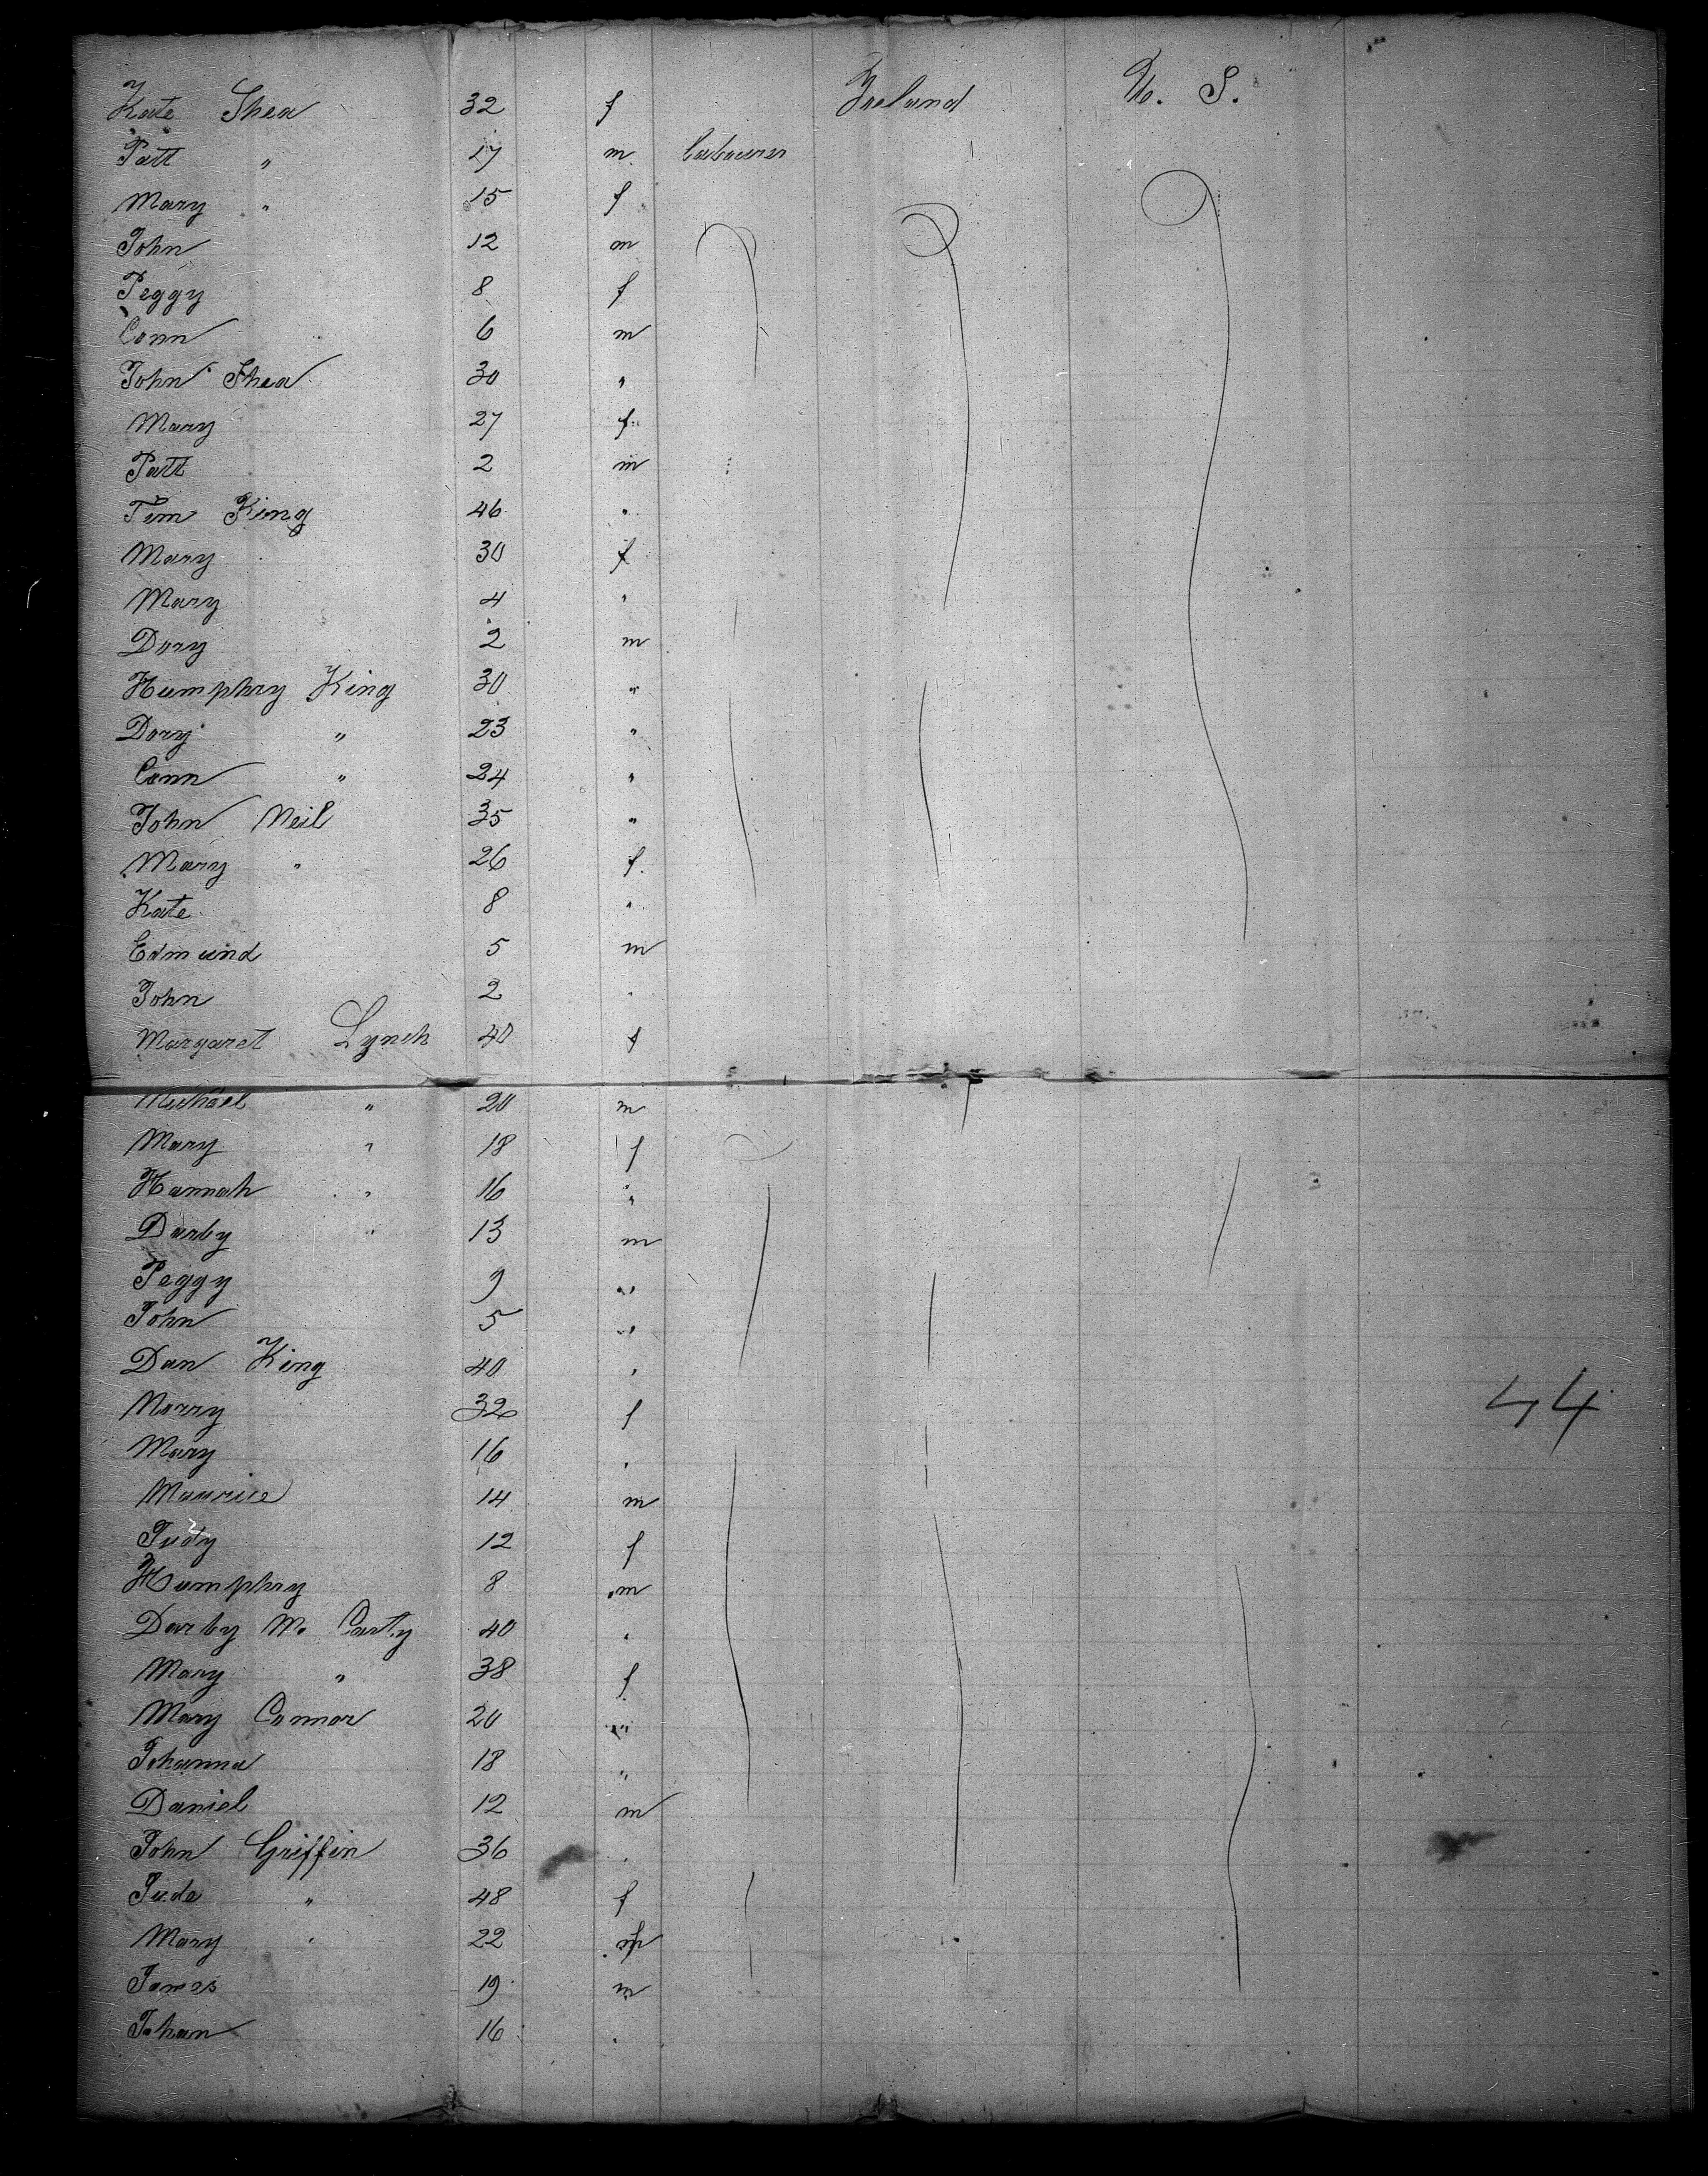 Kate Shea 32 f Ireland U. S.
Patt " 17 m Labourer
Mary " 15 f
John 12 m
Peggy 8 f
Conn 6 m
John Shea 30 "
Mary 27 f
Patt 2 m
Tim King 46 "
Mary 30 f
Mary 4 "
Dory 2 m
Humphry King 30 "
Dory " 23 "
Conn " 24 "
John Neil 35 "
Mary " 26 f.
Kate 8 "
Edmund 5 m
John 2 "
Margaret Lynch 40 f
Michael " 20 m
Mary " 18 f
Hannah " 16 "
Darby " 13 m
Peggy 9 "
John 5 "
Dan King 40 "
Norry 32 f
Mary 16 "
Maurice 14 m
Judy 12 f
Humphry 8 m
Darby Mc Carty 40 "
Mary " 38 f
Mary Connor 20 "
Johanna 18 "
Daniel 12 m
John Griffin 36 "
Jude " 48 f
Mary " 22 f
James 19 m
Johan 16 "
44